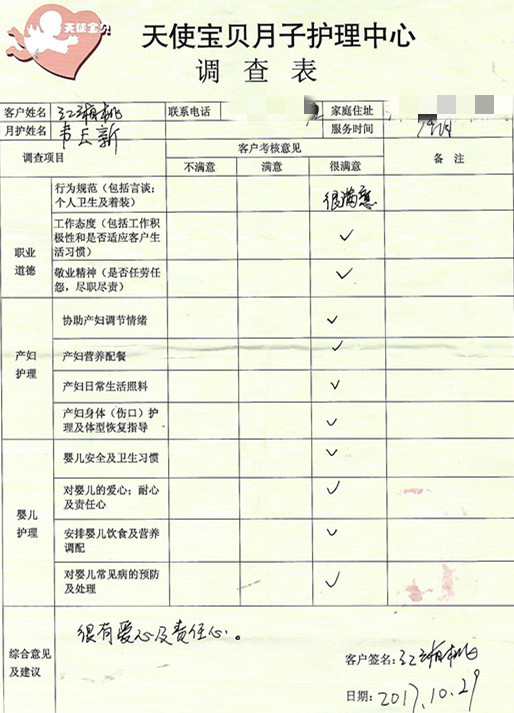 天使宝贝
天使宝贝月子护理中心
调查表
客户姓名 联系电话 家庭住址
月护姓名 服务时间
调查项目 客户考核意见 备注
不满意 满意 很满意
职业道德
行为规范（包括言谈；个人卫生及着装） 很满意
工作态度（包括工作积极性和是否适应客户生活习惯） ✓
敬业精神（是否任劳任怨，尽职尽责） ✓
产妇护理
协助产妇调节情绪 ✓
产妇营养配餐 ✓
产妇日常生活照料 ✓
产妇身体（伤口）护理及体型恢复指导 ✓
婴儿护理
婴儿安全及卫生习惯 ✓
对婴儿的爱心；耐心及责任心 ✓
安排婴儿饮食及营养调配 ✓
对婴儿常见病的预防及处理 ✓
综合意见及建议
很有爱心及责任心。
客户签名：
日期：2017.10.29